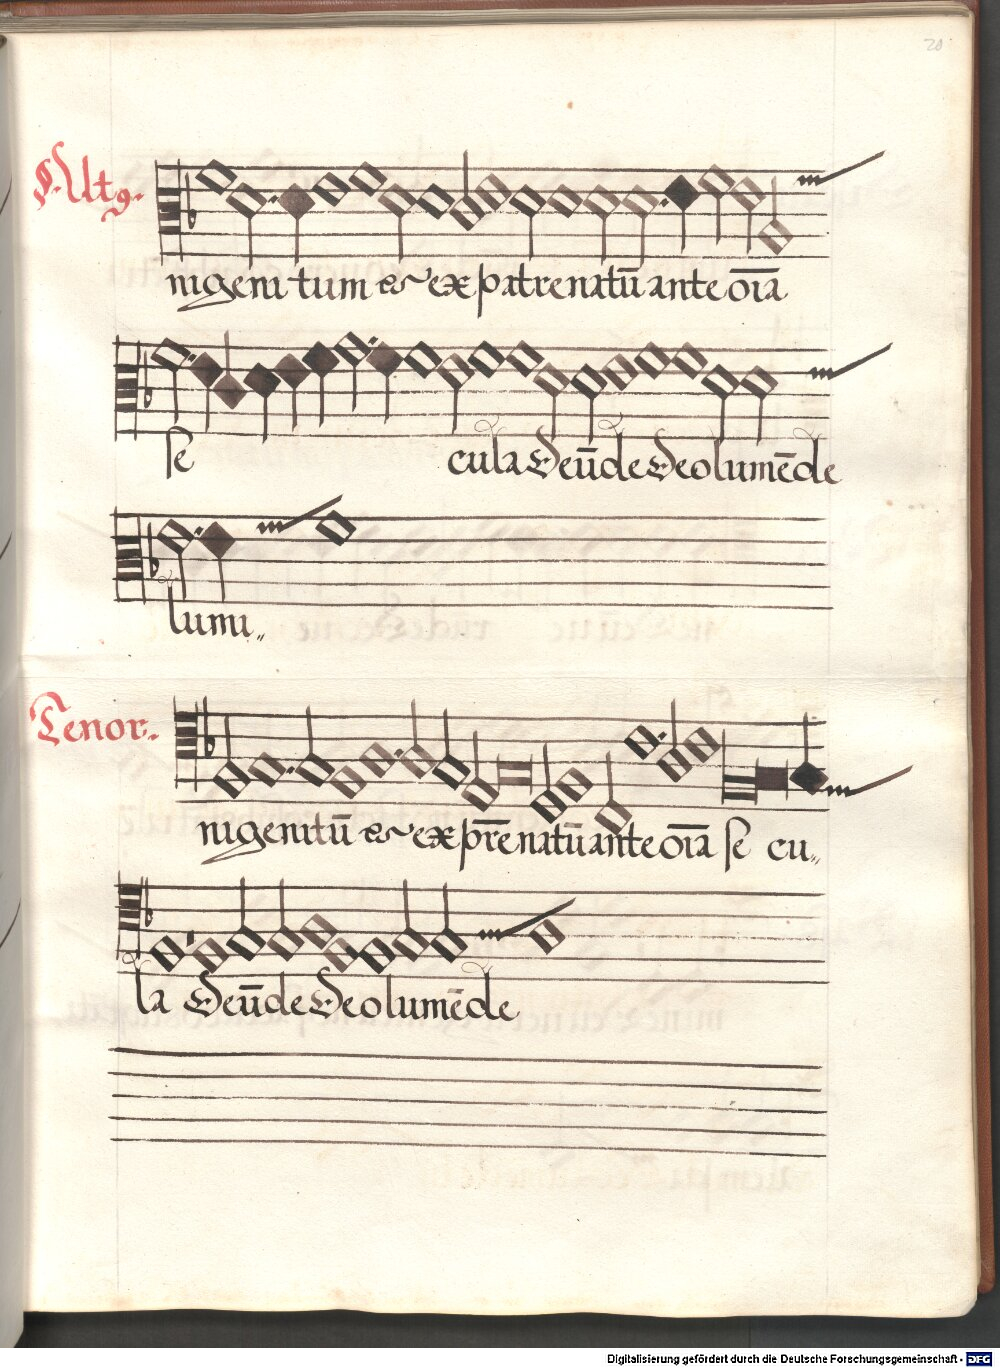 20
Altꝯ.
nigenitum & ex patre natū ante oīa
se cula Deū de Deo lumē de
lumi„
Tenor.
nigenitū & ex pr̄e natū ante oīa se cu„
la Deū de Deo lumē de
Digitalisierung gefördert durch die Deutsche Forschungsgemeinschaft - DFG